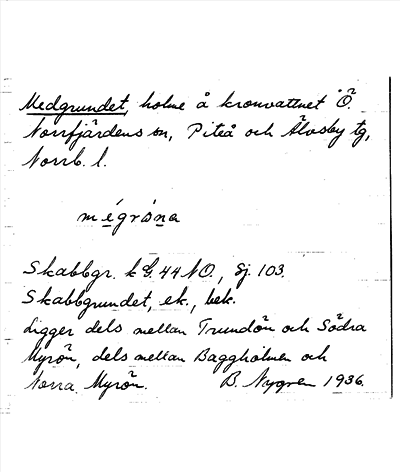 Medgrundet, holme å kronvattnet Ö.
Norrfjärdens sn, Piteå och Älvsby tg,
Norrb. l.
mégróna
Skabbgr. kG. 44 NO., Sj. 103.
Skabbgrundet, ek., bek.
Ligger dels mellan Trundön och Södra
Myrön, dels mellan Baggholmen och
Norra Myrön. B. Nygren 1936.